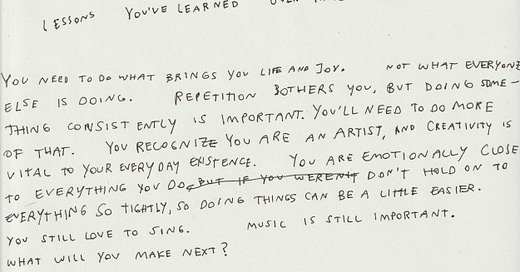 LESSONS YOU'VE LEARNED
YOU NEED TO DO WHAT BRINGS YOU LIFE AND JOY. NOT WHAT EVERYONE
ELSE IS DOING. REPETITION BOTHERS YOU, BUT DOING SOME-
THING CONSISTENTLY IS IMPORTANT. YOU'LL NEED TO DO MORE
OF THAT. YOU RECOGNIZE YOU ARE AN ARTIST, AND CREATIVITY IS
VITAL TO YOUR EVERYDAY EXISTENCE. YOU ARE EMOTIONALLY CLOSE
TO EVERYTHING YOU DO, BUT IF YOU WEREN'T DON'T HOLD ON TO
EVERYTHING SO TIGHTLY, SO DOING THINGS CAN BE A LITTLE EASIER.
YOU STILL LOVE TO SING. MUSIC IS STILL IMPORTANT.
WHAT WILL YOU MAKE NEXT?